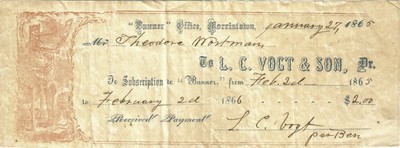 "Banner" Office, Morristown, January 27, 1865
Mr Theodore Wortman
To L. C. VOGT & SON, Dr.
To Subscription to "Banner" from Feb. 2d 1865
to February 2d 1866 $2.00
Received Payment, L C. Vogt
per Ben